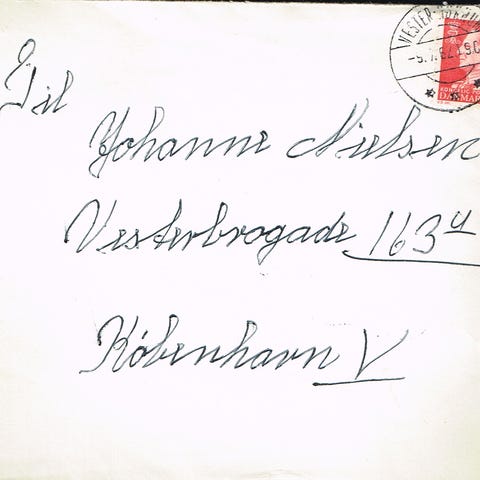 Til
Johanne Nielsen
Vesterbrogade 163 4
København V
DANMARK